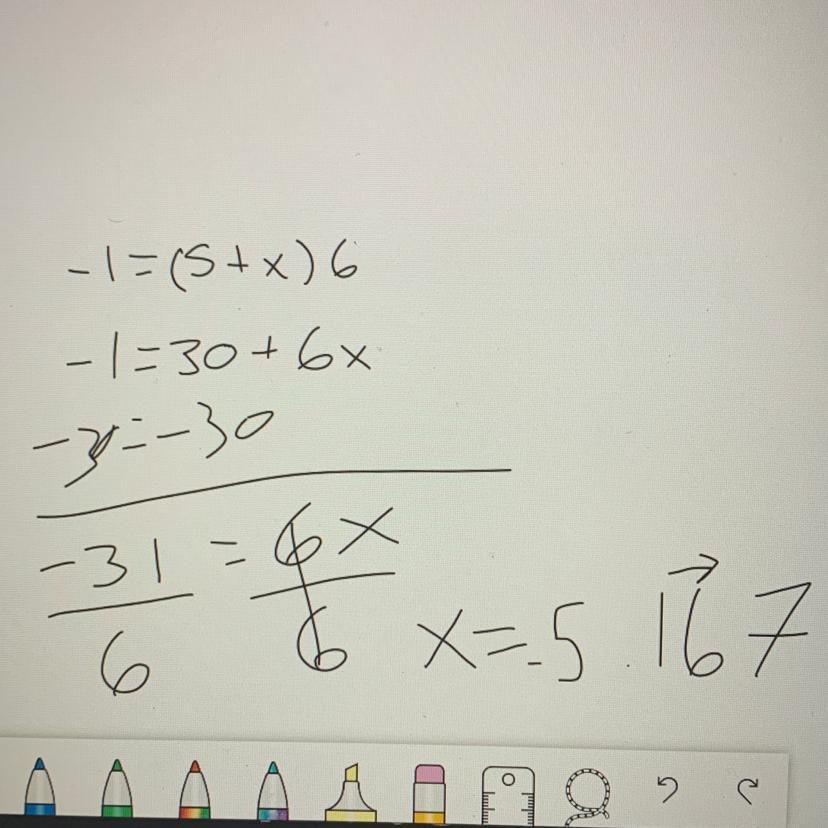 -1=(5+x)6
-1=30+6x
-30
-31 = 6x
6 6
x=-5.167